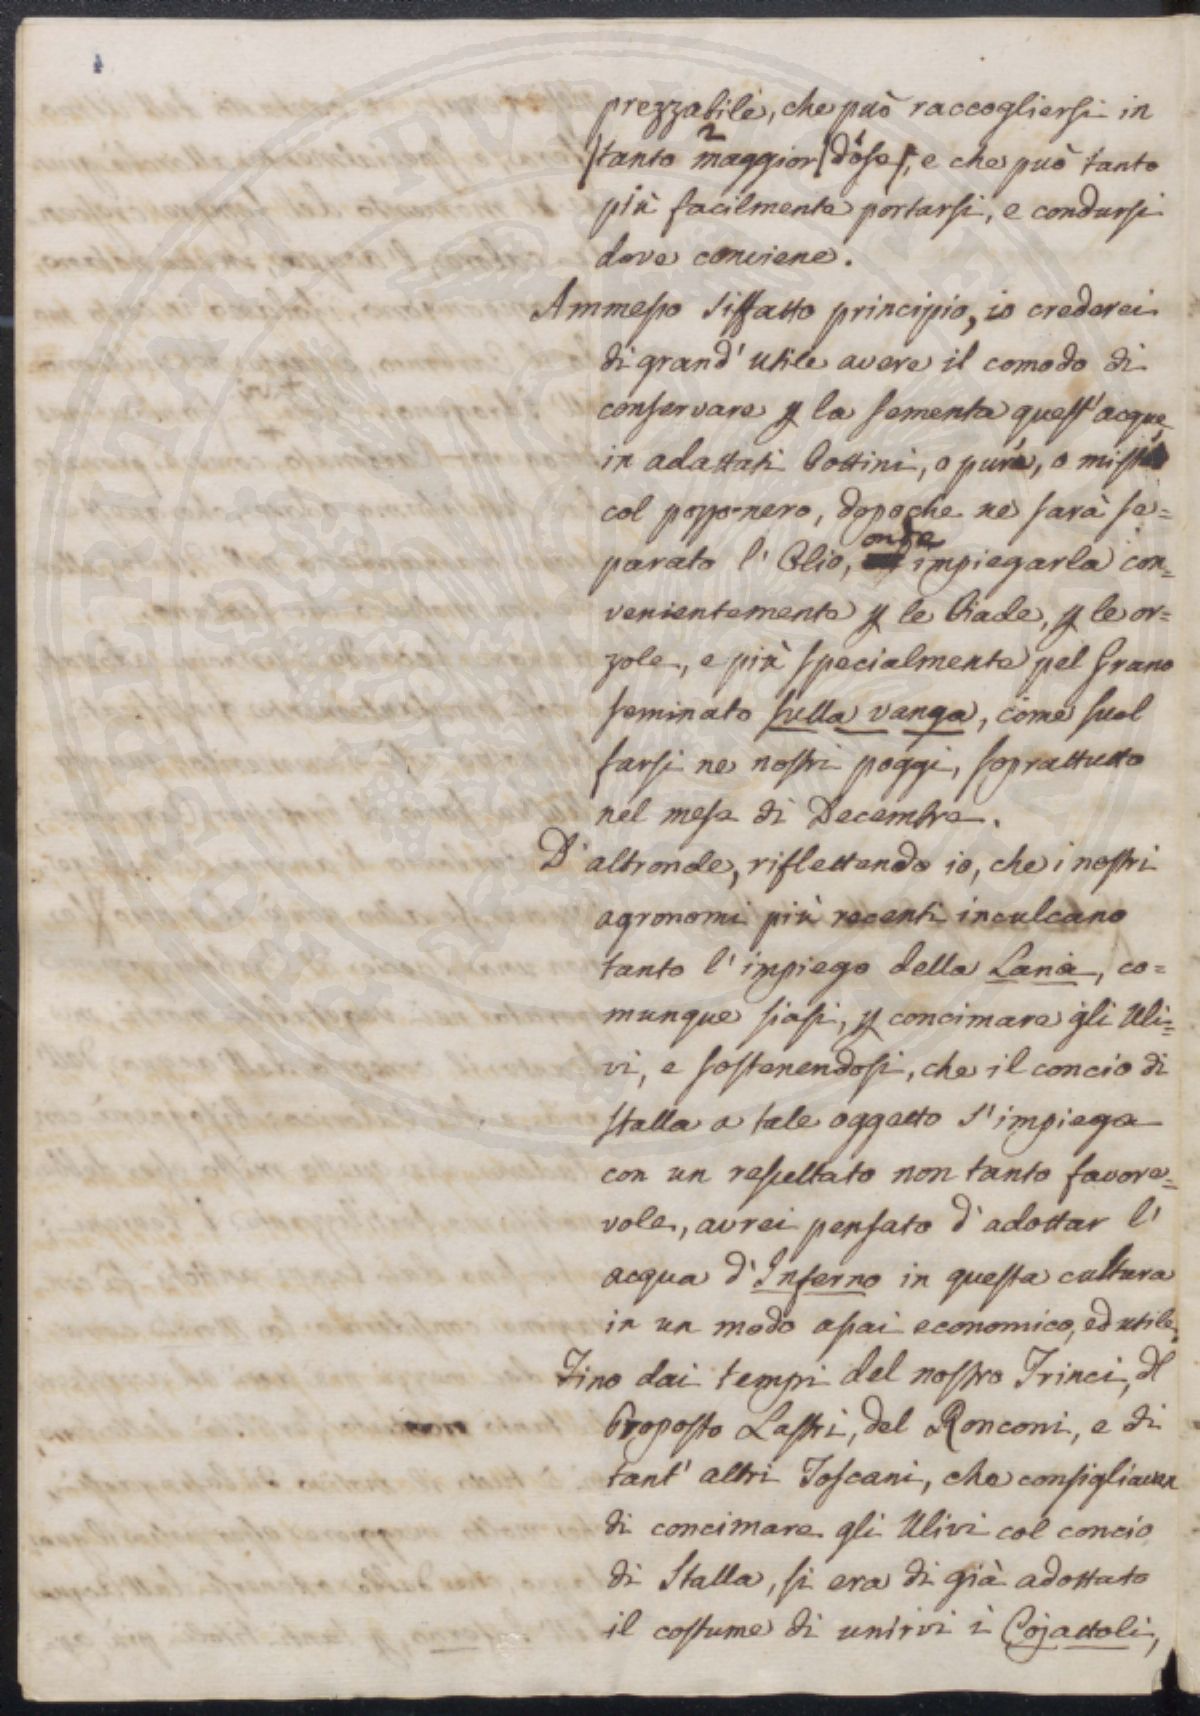 prezzabile, che può raccogliersi in
tanto maggior dose, e che può tanto
più facilmente portarsi, e condursi
dove conviene.
Ammesso siffatto principio, io crederei
di grand' utile avere il comodo di
conservare p la sementa quest' acque
in adattati bottini, o pure, o miste
col pozzo-nero, dopoche ne sarà se=
parato l' Olio, onde impiegarla con=
venientemente p le biade, p le or=
zole, e più specialmente pel Grano
seminato sulla vanga, come suol
farsi ne nostri poggi, soprattutto
nel mese di Decembre.
D' altronde, riflettendo io, che i nostri
agronomi più recenti inculcano
tanto l' impiego della Lana, co=
munque siasi, p concimare gli Uli=
vi, e sostenendosi, che il concio di
stalla a tale oggetto s' impiega
con un resultato non tanto favore=
vole, avrei pensato d' adottar l'
acqua d' Inferno in questa cultura
in un modo assai economico, ed utile.
Fino dai tempi del nostro Trinci, del
Proposto Lastri, del Ronconi, e di
tant' altri Toscani, che consigliavan
di concimare gli Ulivi col concio
di Stalla, si era di già adottato
il costume di unirvi i Cojattoli,